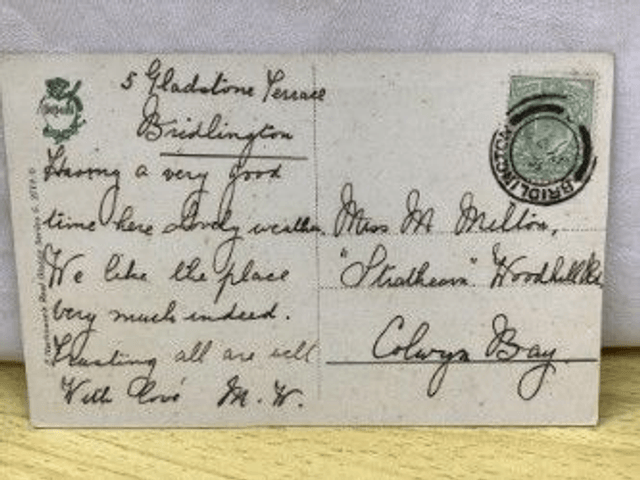 5 Gladstone Terrace
Bridlington
Having a very good
time here Lovely weather.
We like the place
very much indeed.
Trusting all are well
With love M. W.
Miss M. Milton,
"Strathearn" Woodhill Rd
Colwyn Bay.
BRIDLINGTON